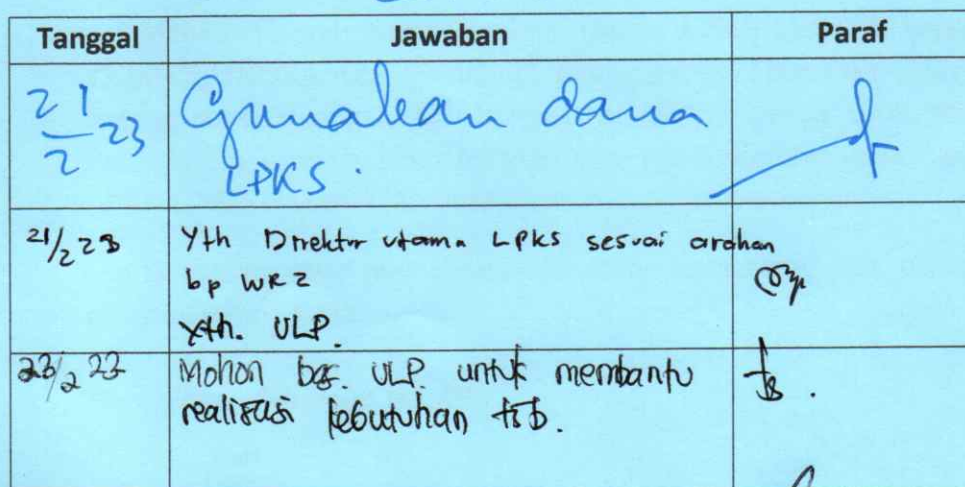 Tanggal Jawaban Paraf
21/2 23 Gunakan dana
LPKS.
21/2 23 Yth Direktur utama LPKS sesuai arahan
bp WR2
Yth. ULP.
23/2 23 Mohon bag. ULP. untuk membantu
realisasi kebutuhan tsb.